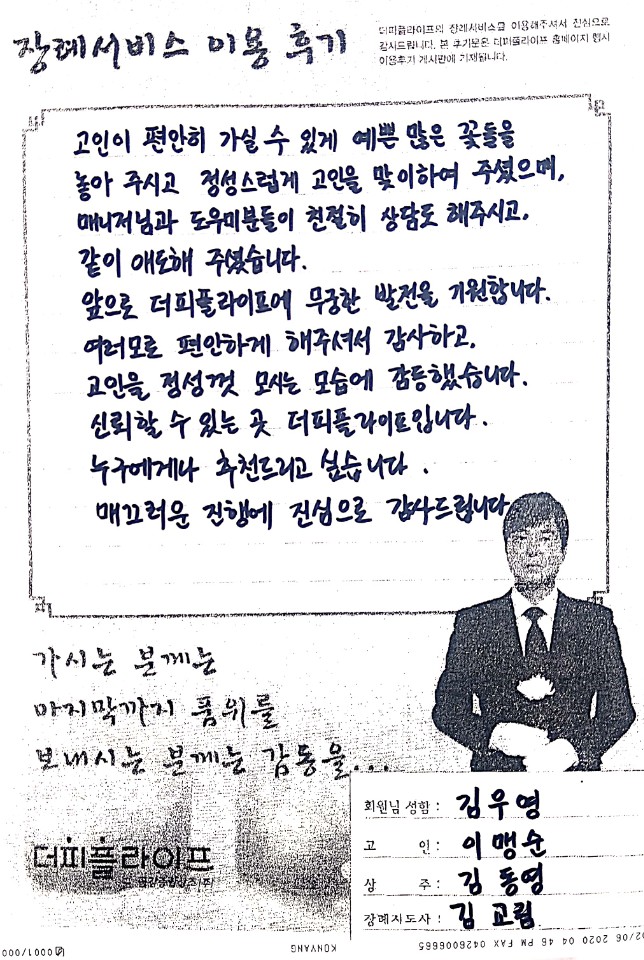 장례서비스 이용 후기
더피플라이프의 장례서비스를 이용해주셔서 진심으로
감사드립니다. 본 후기문은 더피플라이프 홈페이지 행사
이용후기 게시판에 기재됩니다.
고인이 편안히 가실 수 있게 예쁜 많은 꽃들을
놓아 주시고 정성스럽게 고인을 맞이하여 주셨으며,
매니저님과 도우미분들이 친절히 상담도 해주시고,
같이 애도해 주셨습니다.
앞으로 더피플라이프에 무궁한 발전을 기원합니다.
여러모로 편안하게 해주셔서 감사하고,
고인을 정성껏 모시는 모습에 감동했습니다.
신뢰할 수 있는 곳 더피플라이프입니다.
누구에게나 추천드리고 싶습니다.
매끄러운 진행에 진심으로 감사드립니다
가시는 분께는
마지막까지 품위를
보내시는 분께는 감동을...
더피플라이프
회원님 성함 : 김우영
고 인 : 이맹순
상 주 : 김동영
장례지도사 : 김교림
02/06 2020 04 46 PM FAX 0426006665 KONYANG 0001/000